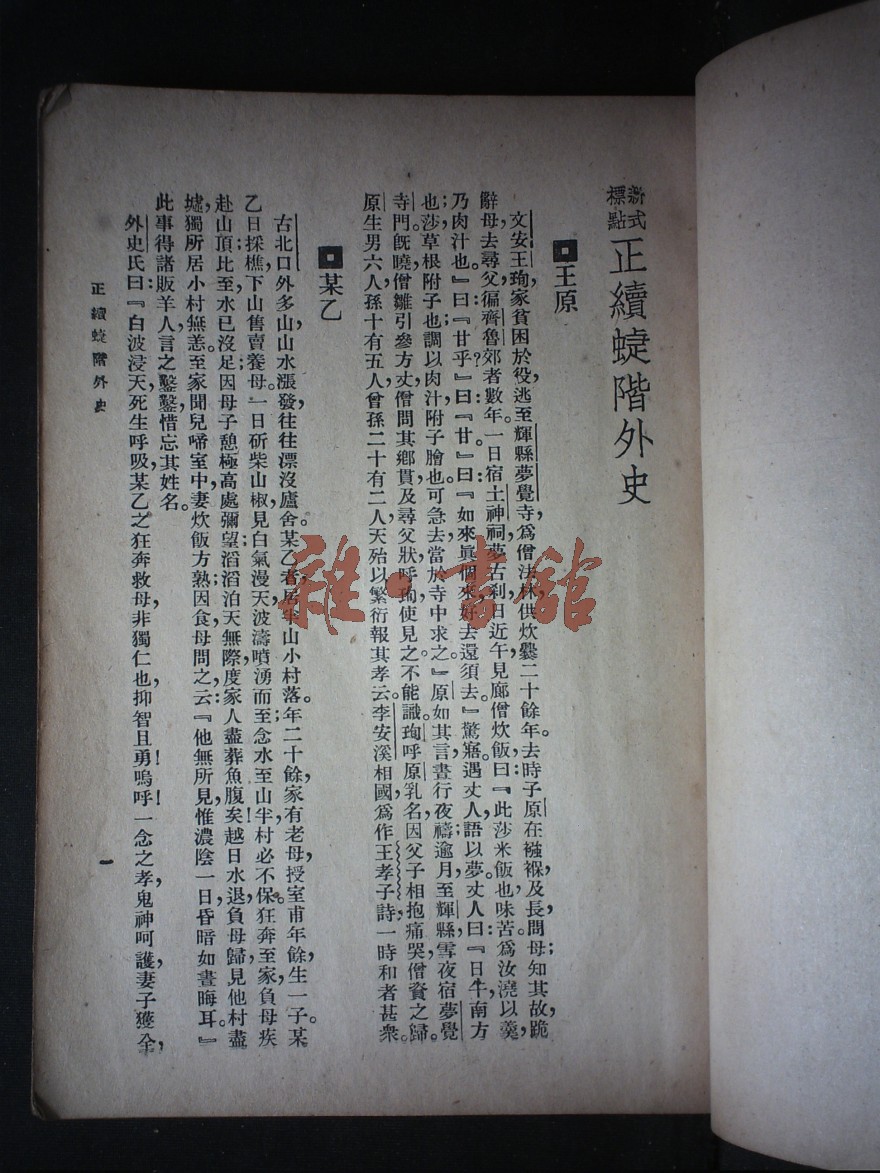 新式標點 正續蜨階外史
王原
文安王珣家貧困於役，逃至輝縣夢覺寺，爲僧法林供炊爨二十餘年。去時子原在襁褓，及長，問母；知其故，跪
辭母去尋父，徧齊魯郊者數年。一日宿土神祠，夢古刹，日近午，見廊僧炊飯，曰：『此莎米飯也，味苦，爲汝澆以羹，
乃肉汁也。』曰：『甘乎？』曰：『甘。』曰：『如來眞個來，好去還須去。』驚寤。遇丈人，語以夢。丈人曰：『日午南方
也；莎草根附子也；調以肉汁，附子膾也。可急去，當於寺中求之。』原如其言，晝行夜禱；逾月，至輝縣，雪夜宿夢覺
寺門。旣曉，僧雛引參方丈，僧問其鄉貫，及尋父狀，呼珣使見之，不能識。珣呼原乳名，因父子相抱痛哭。僧資之歸。
原生男六人，孫十有五人，曾孫二十有二人，天殆以繁衍報其孝云。李安溪相國爲作王孝子詩；一時和者甚衆。
某乙
古北口外多山，山水漲發，往往漂沒廬舍。某乙者，居半山小村落。年二十餘，家有老母，授室甫年餘，生一子。某
乙日採樵下山，售賣養母。一日斫柴山椒，見白氣漫天，波濤噴湧而至；念水至山半，村必不保。狂奔至家，負母疾
赴山頂；比至，水已沒足；因母子憩極高處，彌望滔滔，泊天無際，度家人盡葬魚腹矣！越日水退，負母歸，見他村盡
墟，獨所居小村無恙。至家，聞兒啼室中，妻炊飯方熟，因食母。問之，云：『他無所見，惟濃陰一日，昏暗如晝晦耳。』
此事得諸販羊人，言之鑿鑿，惜忘其姓名。
外史氏曰：『白波浸天，死生呼吸，某乙之狂奔救母，非獨仁也，抑智且勇！嗚呼！一念之孝，鬼神呵護，妻子獲全，
正續蜨階外史
一
雜·書館